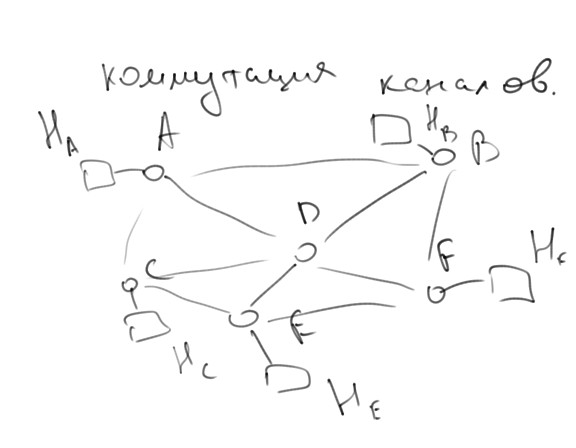 коммутация каналов.
H_A A H_B B
D
C F H_F
E
H_C
H_E